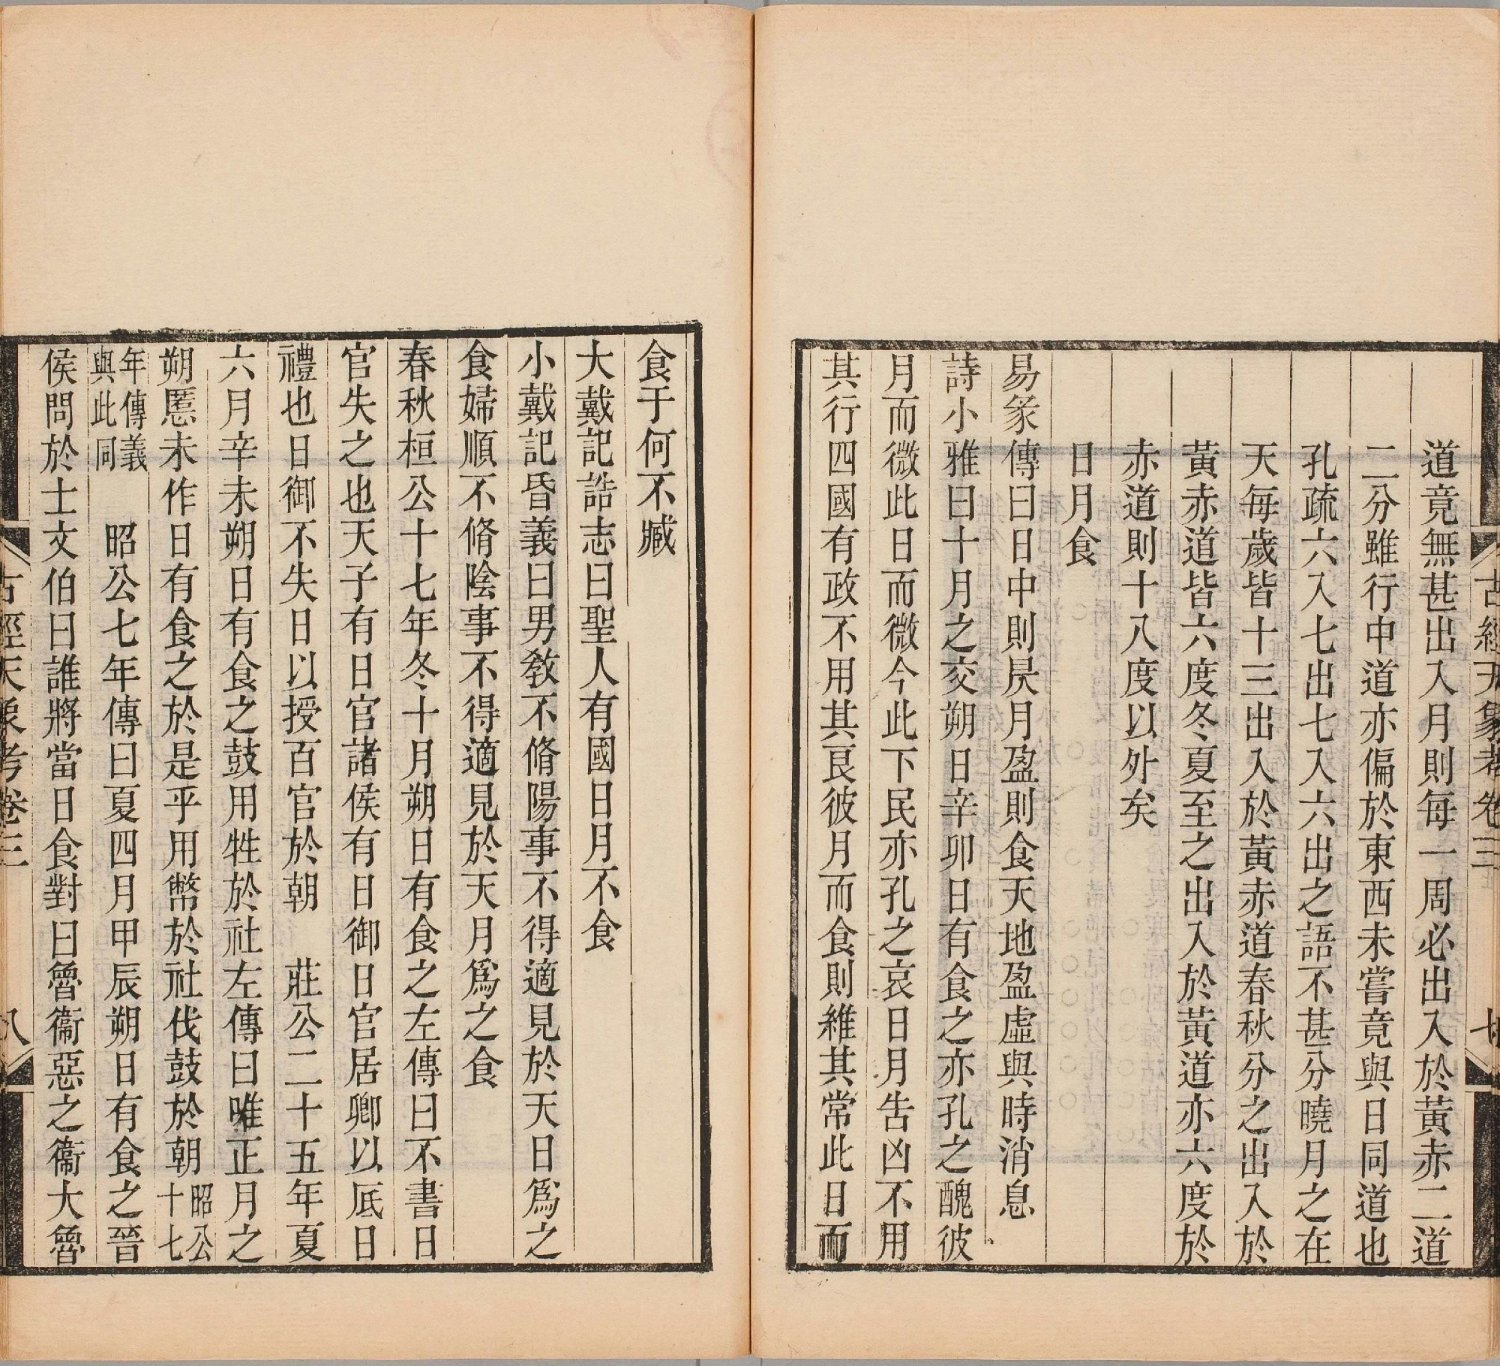 道竟無甚出入月則每一周必出入於黃赤二道
二分雖行中道亦偏於東西未嘗竟與日同道也
孔疏六入七出七入六出之語不甚分曉月之在
天每歲皆十三出入於黃赤道春秋分之出入於
黃赤道皆六度冬夏至之出入於黃道亦六度於
赤道則十八度以外矣
日月食
易彖傳曰日中則昃月盈則食天地盈虛與時消息
詩小雅曰十月之交朔日辛卯日有食之亦孔之醜彼
月而微此日而微今此下民亦孔之哀日月告凶不用
其行四國有政不用其良彼月而食則維其常此日而
古經天象考卷三 七
食于何不臧
大戴記誥志曰聖人有國日月不食
小戴記昏義曰男敎不脩陽事不得適見於天日爲之
食婦順不脩陰事不得適見於天月爲之食
春秋桓公十七年冬十月朔日有食之左傳曰不書日
官失之也天子有日官諸侯有日御日官居卿以厎日
禮也日御不失日以授百官於朝 莊公二十五年夏
六月辛未朔日有食之鼓用牲於社左傳曰唯正月之
朔慝未作日有食之於是乎用幣於社伐鼓於朝昭公十七
年傳義與此同 昭公七年傳曰夏四月甲辰朔日有食之晉
侯問於士文伯曰誰將當日食對曰魯衞惡之衞大魯
古經天象考卷三 八